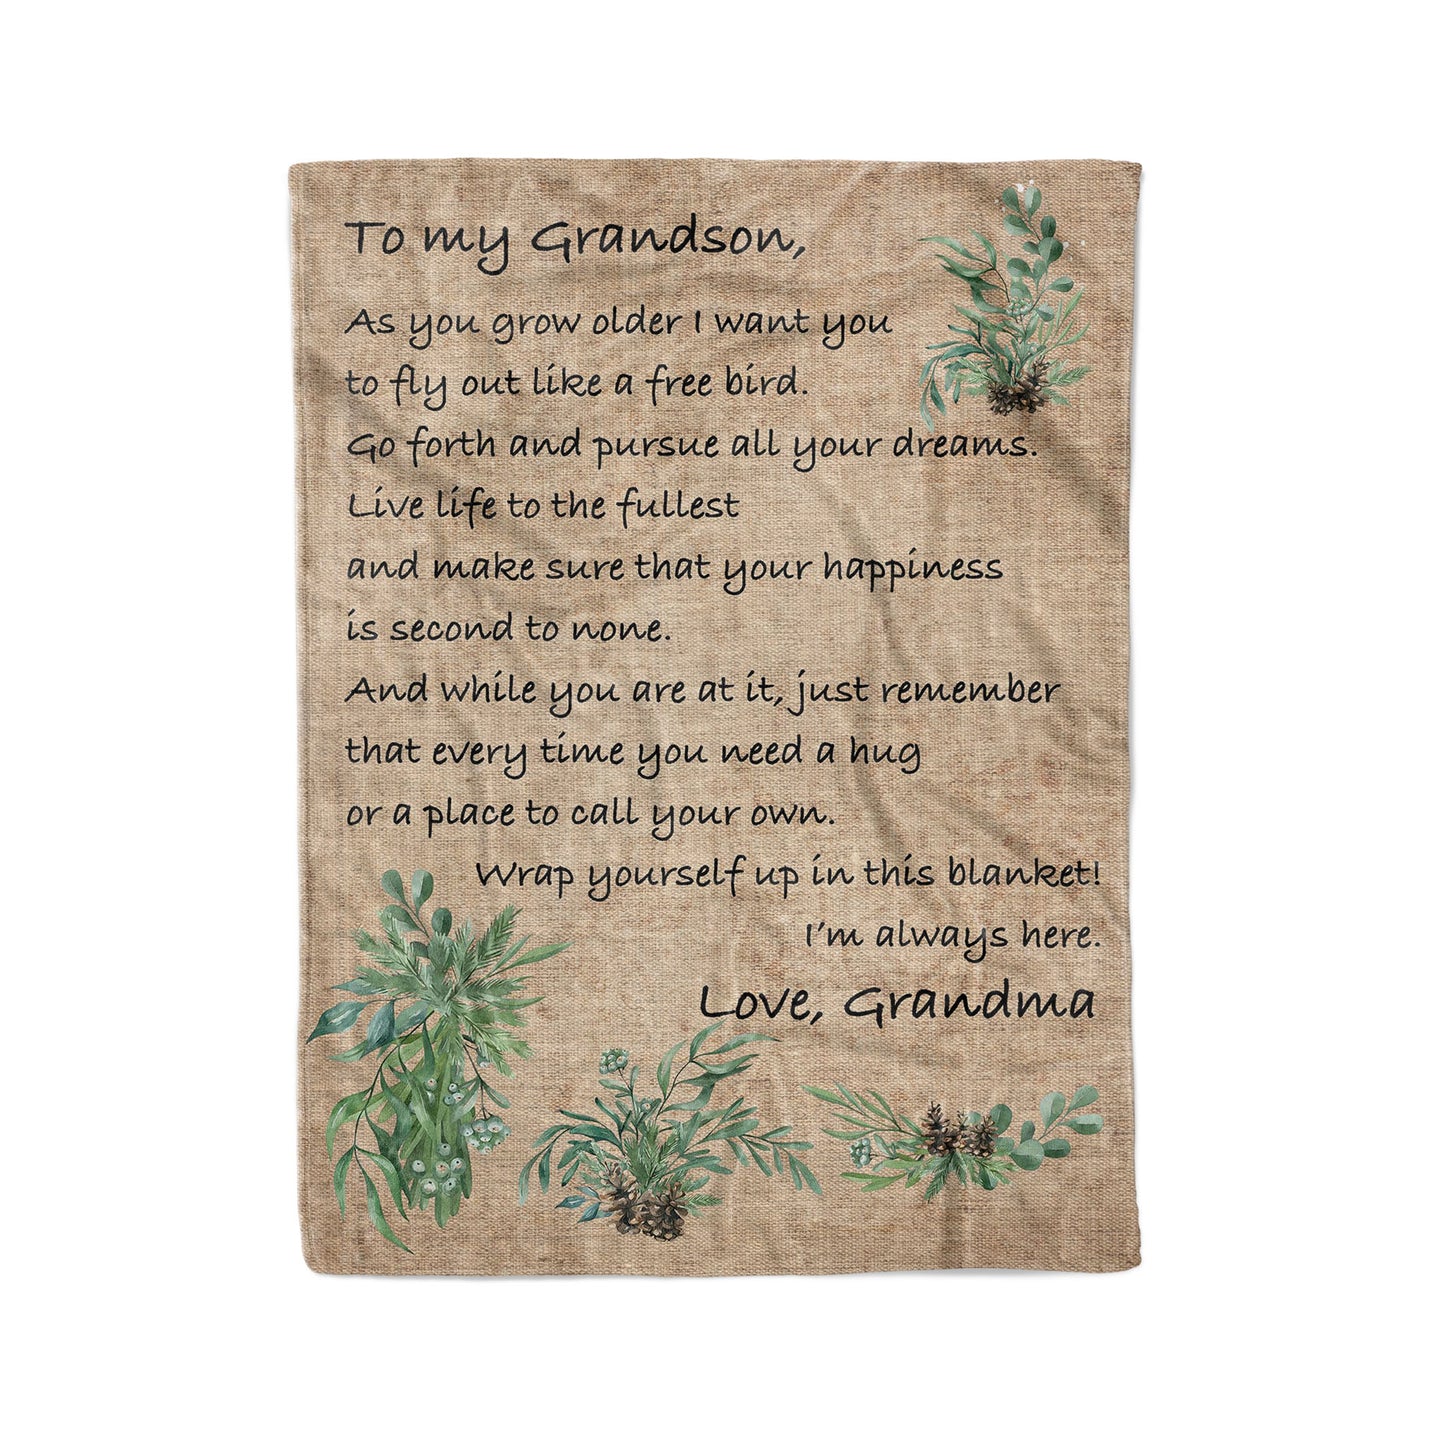 To my Grandson,
As you grow older I want you
to fly out like a free bird.
Go forth and pursue all your dreams.
Live life to the fullest
and make sure that your happiness
is second to none.
And while you are at it, just remember
that every time you need a hug
or a place to call your own.
Wrap yourself up in this blanket!
I'm always here.
Love, Grandma